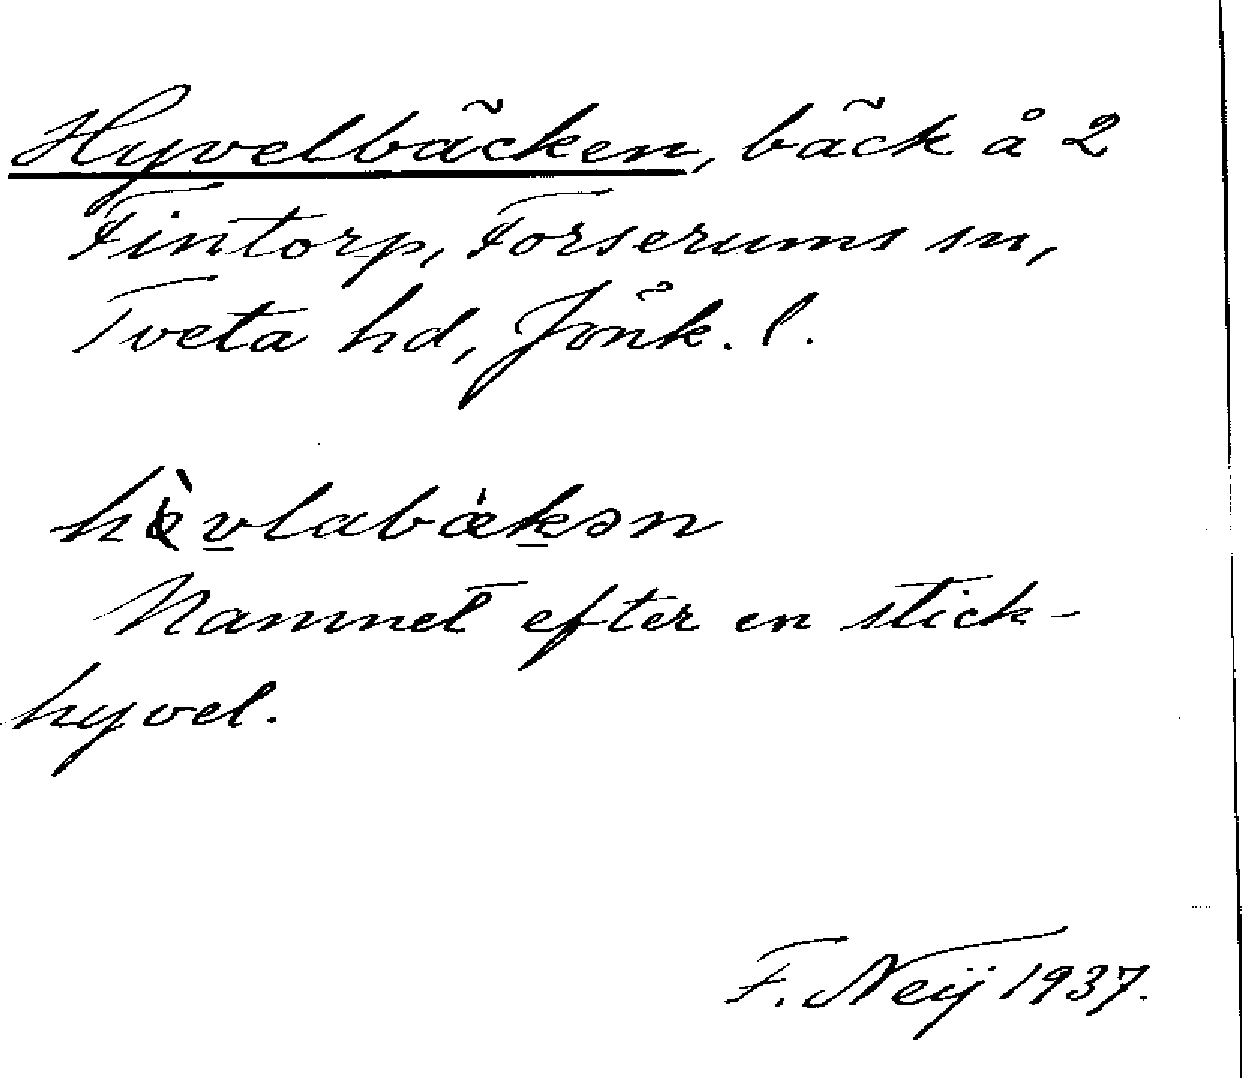 Hyvelbäcken, bäck å 2
Fintorp, Forserums sn,
Tveta hd, Jönk. l.
hø̀vlabækən
Namnet efter en stick-
hyvel.
F. Neij 1937.